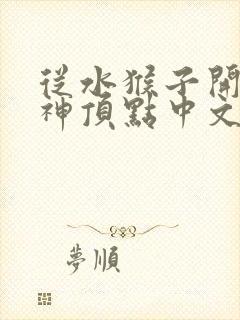 從水猴子開
神頂點中文
夢順